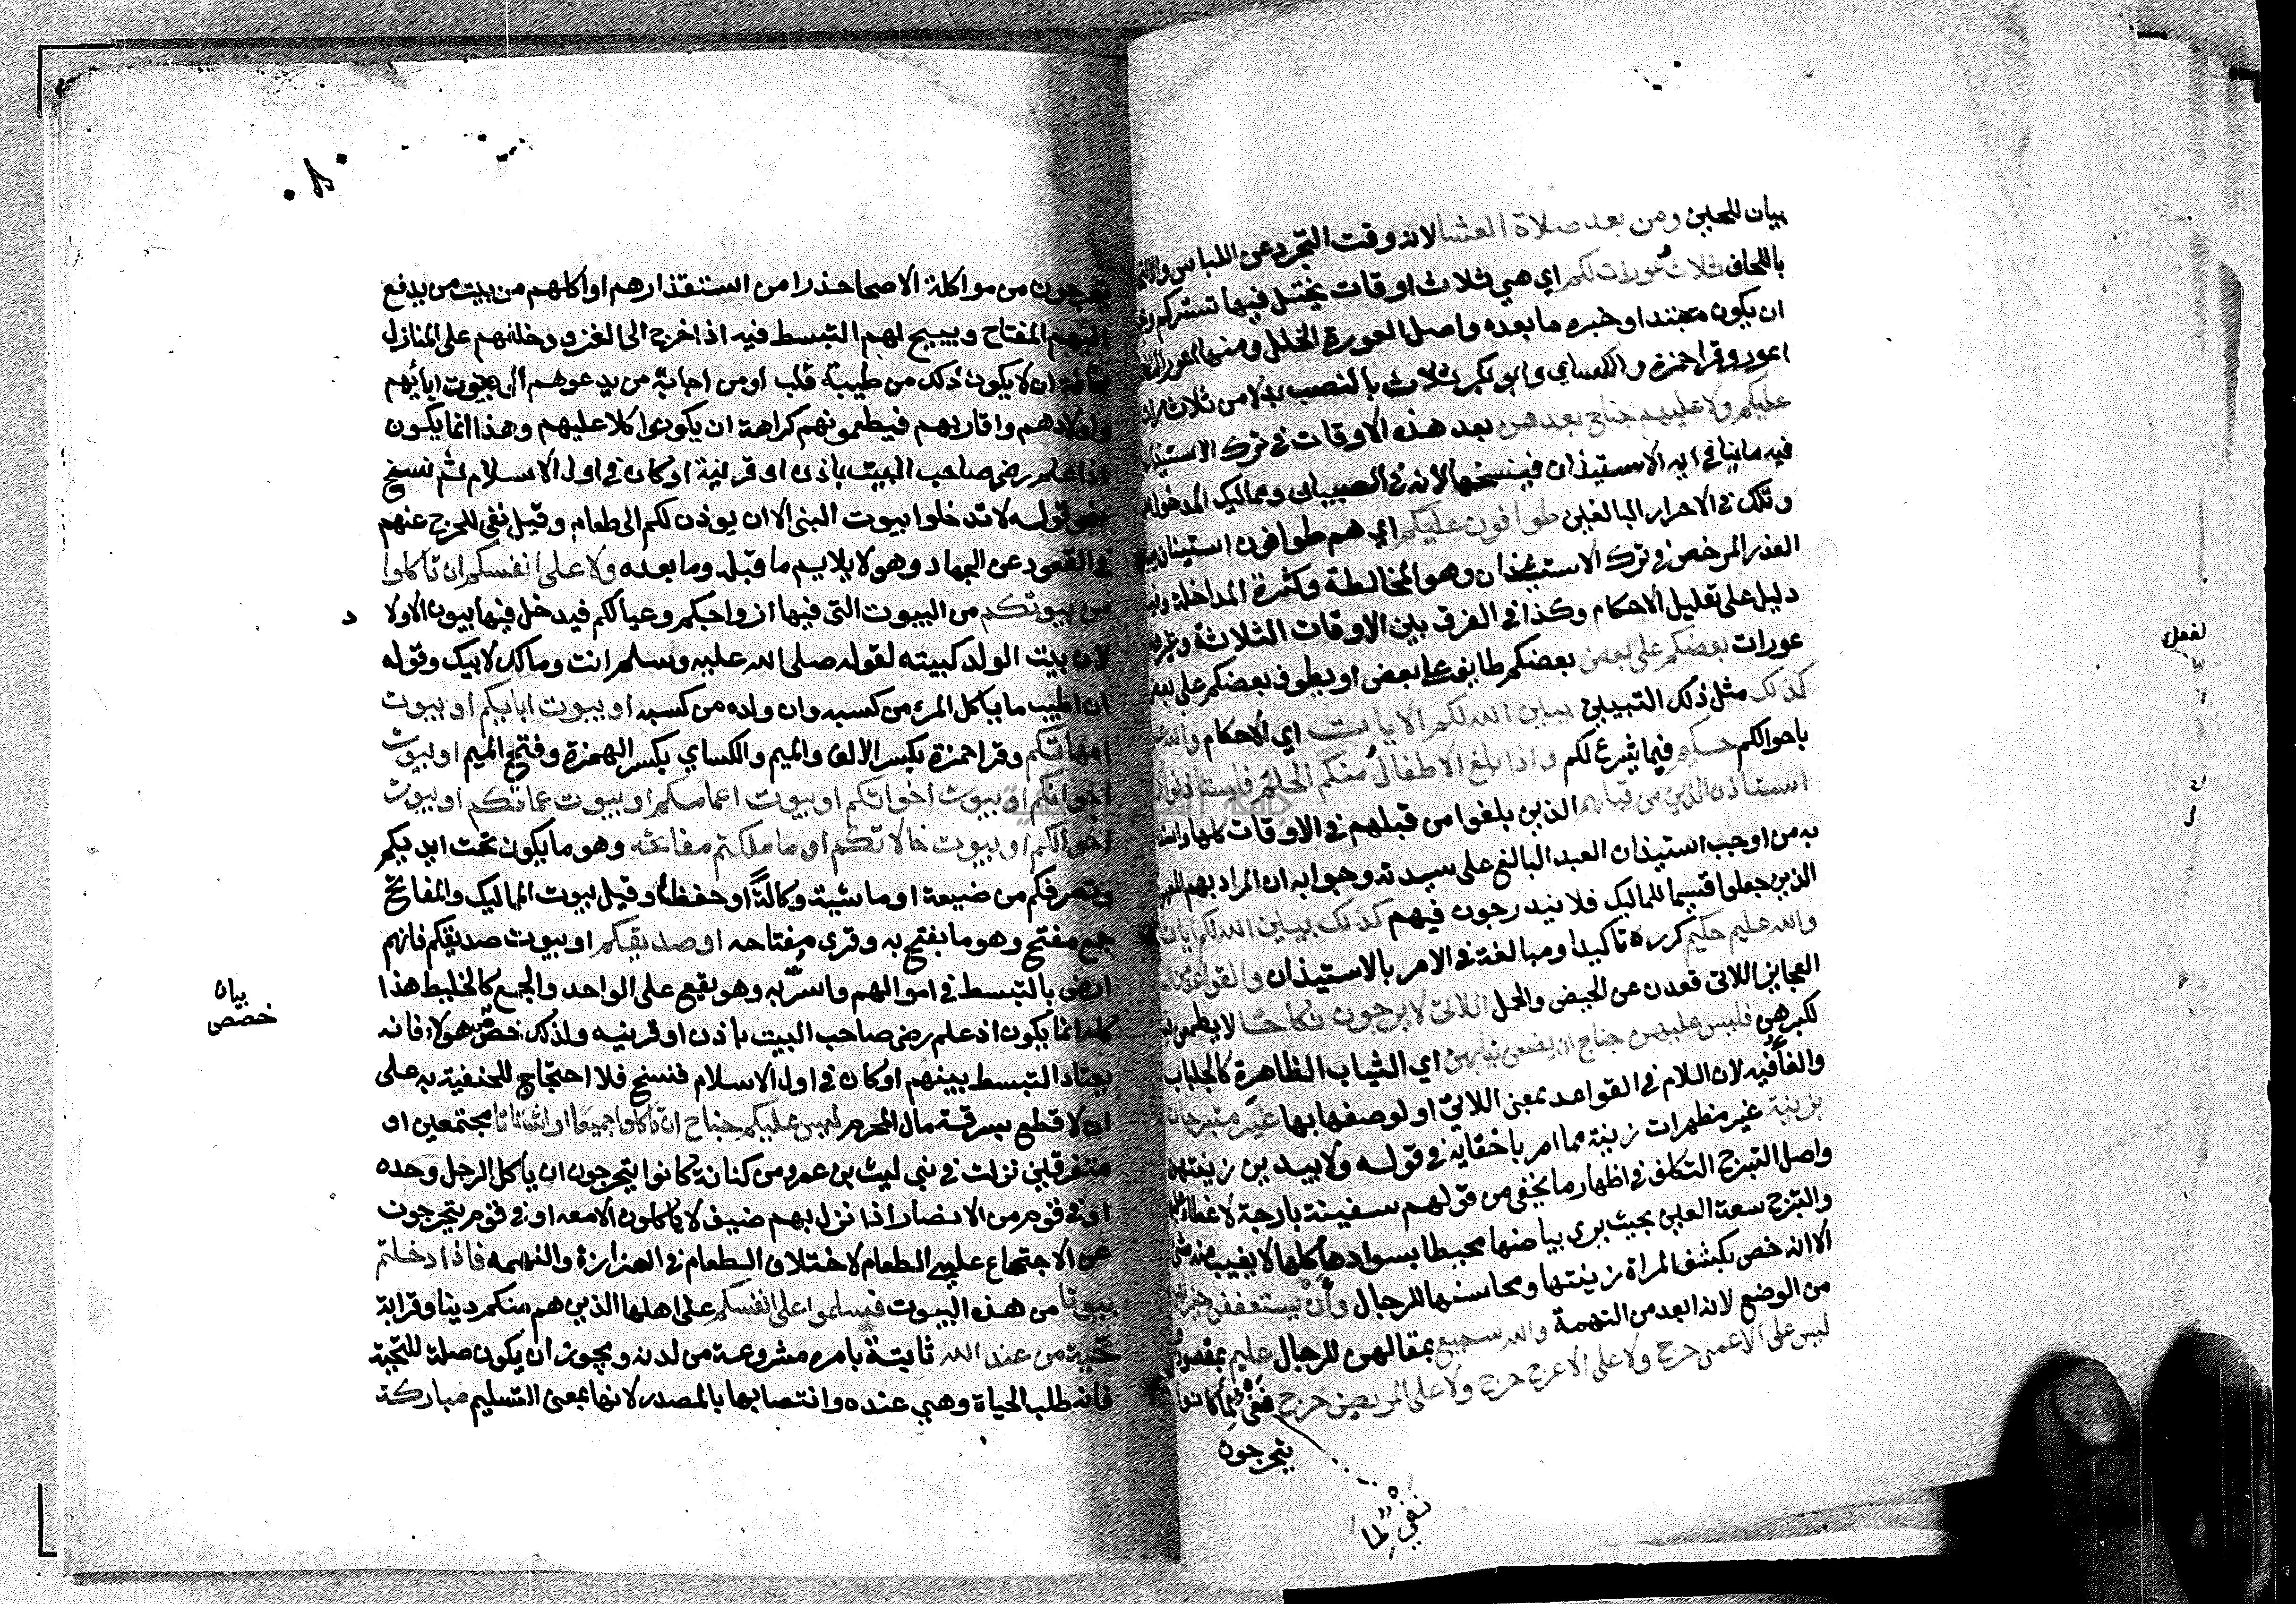 بيان للحين ومن بعد صلاة العشا لانه وقت التجرد عن اللباس والالتحاف
باللحاف ثلاث عورات لكم اي هي ثلاث اوقات يختل فيها تستركم
ان يكون مبتدا وخبره ما بعده واصل العورة الخلل ومنها اعور المكان
اعور وقرا حمزة والكساي وابو بكر ثلاث بالنصب بدلا من ثلاث مرات
عليكم ولا عليهم جناح بعدهن بعد هذه الاوقات في ترك الاستيذان
فيه ما ينافي ايه الاستيذان فينسخها لانه في الصبيان ومماليك المدخول عليه
وتلك في الاحرار البالغين طوافون عليكم اي هم طوافون استيناف
العذر المرخص في ترك الاستيذان وهو المخالطة وكثرة المداخلة وفيه
دليل على تعليل الاحكام وكذا في الفرق بين الاوقات الثلاثة وغيرها
عورات بعضكم على بعض بعضكم طايف على بعض او يطوف بعضكم على بعض
كذلك مثل ذلك التبيين يبين الله لكم الايات اي الاحكام والله
باحوالكم حكيم فيما شرع لكم واذا بلغ الاطفال منكم الحلم فليستاذنوا كما
استاذن الذين من قبلهم الذين بلغوا من قبلهم في الاوقات كلها
به من اوجب استيذان العبد البالغ على سيدته وجوابه ان المراد بهم المعهودون
الذين جعلوا قسيما للمماليك فلا يندرجون فيهم كذلك يبين الله لكم اياته
والله عليم حكيم كرره تاكيدا ومبالغة في الامر بالاستيذان والقواعد
العجايز اللاتي قعدن عن الحيض والحمل اللاتي لا يرجون نكاحا لا يطمعن
لكبرهن فليس عليهن جناح ان يضعن ثيابهن اي الثياب الظاهرة كالجلباب
والفا فيه لان اللام في القواعد بمعنى اللاتي او لوصفها بها غير متبرجات
بزينة غير مظهرات زينة مما امر باخفايه في قوله ولا يبدين زينتهن
واصل التبرج التكلف في اظهار ما يخفى من قولهم سفينة بارجة لا غطا عليها
والتبرج سعة العين بحيث يرى بياضها محيطا بسوادها كلها لا يغيب منه شي
الا انه خص بكشف المراة زينتها ومحاسنها للرجال وان يستعففن خير لهن
من الوضع لانه ابعد من التهمة والله سميع بمقالهن للرجال عليم بمقصودهن
ليس على الاعمى حرج ولا على الاعرج حرج ولا على المريض حرج نفي لما كانوا
يتحرجون
نفي لما
لفعل
يتحرجون من مواكلة الاصحا حذرا من استقذارهم او اكلهم من بيت من يدفع
اليهم المفتاح ويبيح لهم التبسط فيه اذا خرج الى الغزو وخلفهم على المنازل
مخافة ان لا يكون ذلك من طيبة قلب او من اجابة من يدعوهم الى بيوت ابايهم
واولادهم واقاربهم فيطعمونهم كراهة ان يكونوا كلا عليهم وهذا انما يكون
اذا علم رضى صاحب البيت باذن او قرينة او كان في اول الاسلام ثم نسخ
بنحو قوله لا تدخلوا بيوت النبي الا ان يوذن لكم الى طعام وقيل نفي للحرج عنهم
في القعود عن الجهاد وهو لا يلايم ما قبله وما بعده ولا على انفسكم ان تاكلوا
من بيوتكم من البيوت التي فيها ازواجكم وعيالكم فيدخل فيها بيوت الاولا
د
لان بيت الولد كبيته لقوله صلى الله عليه وسلم انت ومالك لابيك وقوله
ان اطيب ما ياكل المرء من كسبه وان ولده من كسبه او بيوت ابايكم او بيوت
امهاتكم وقرا حمزة بكسر الالف والميم والكساي بكسر الهمزة وفتح الميم او بيوت
اخوانكم او بيوت اخواتكم او بيوت اعمامكم او بيوت عماتكم او بيوت
اخوالكم او بيوت خالاتكم او ما ملكتم مفاتحه وهو ما يكون تحت ايديكم
وتصرفكم من ضيعة او ماشية وكالة او حفظا وقيل بيوت المماليك والمفاتح
جمع مفتح وهو ما يفتح به وقرى مفتاحه او صديقكم او بيوت صديقكم فانهم
ارضى بالتبسط في اموالهم واسر به وهو يقع على الواحد والجمع كالخليط هذا
كله انما يكون اذ علم رضى صاحب البيت باذن او قرينه ولذلك خصص هولاء فانه
يعتاد التبسط بينهم او كان في اول الاسلام فنسخ فلا احتجاج للحنفية به على
ان لا قطع بسرقة مال المحرم ليس عليكم جناح ان تاكلوا جميعا او اشتاتا مجتمعين او
متفرقين نزلت في بني ليث بن عمرو من كنانة كانوا يتحرجون ان ياكل الرجل وحده
او في قوم من الانصار اذا نزل بهم ضيف لا ياكلون الا معه او في قوم يتحرجون
عن الاجتماع على الطعام لاختلاف الطعام في القزازة والنهمه فاذا دخلتم
بيوتا من هذه البيوت فسلموا على انفسكم على اهلها الذين هم منكم دينا وقرابة
تحية من عند الله ثابتة بامره مشروعة من لدنه ويجوز ان يكون صلة للتحية
فانه طلب الحياة وهي عنده وانتصابها بالمصدر لانها بمعنى التسليم مباركة
بيان
خصص